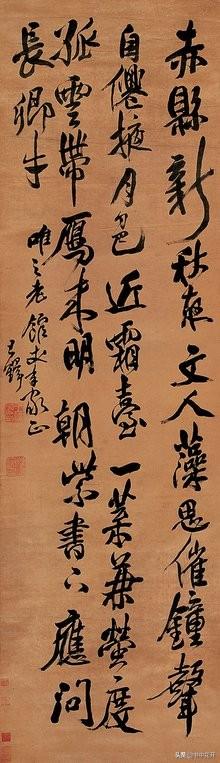 赤縣新秋夜文人藻思催鐘聲
自僊掖月色近霜臺一葉兼螢度
孤雲帶雁來明朝紫書下應問
長卿才
唯之老館丈年家正
王鐸